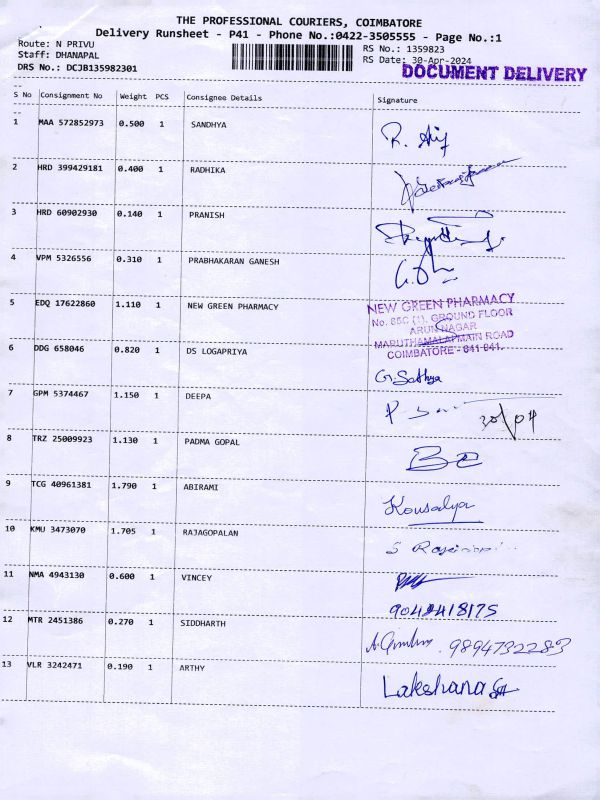 THE PROFESSIONAL COURIERS, COIMBATORE
Delivery Runsheet - P41 - Phone No.:0422-3505555 - Page No.:1
Route: N PRIVU RS No.: 1359823
Staff: DHANAPAL RS Date: 30-Apr-2024
DRS No.: DCJB135982301 DOCUMENT DELIVERY
S No Consignment No Weight PCS Consignee Details Signature
1 MAA 572852973 0.500 1 SANDHYA
2 HRD 399429181 0.400 1 RADHIKA
3 HRD 60902930 0.140 1 PRANISH
4 VPM 5326556 0.310 1 PRABHAKARAN GANESH
5 EDQ 17622860 1.110 1 NEW GREEN PHARMACY
NEW GREEN PHARMACY
No. 85C (1), GROUND FLOOR
ARUN NAGAR
MARUTHAMALAI MAIN ROAD
COIMBATORE - 641 041.
6 DDG 658046 0.820 1 DS LOGAPRIYA G. Sathya
7 GPM 5374467 1.150 1 DEEPA 30/04
8 TRZ 25009923 1.130 1 PADMA GOPAL
9 TCG 40961381 1.790 1 ABIRAMI Kousalya
10 KMU 3473070 1.705 1 RAJAGOPALAN
11 NMA 4943130 0.600 1 VINCEY
12 MTR 2451386 0.270 1 SIDDHARTH 9894732283
13 VLR 3242471 0.190 1 ARTHY Lakshana